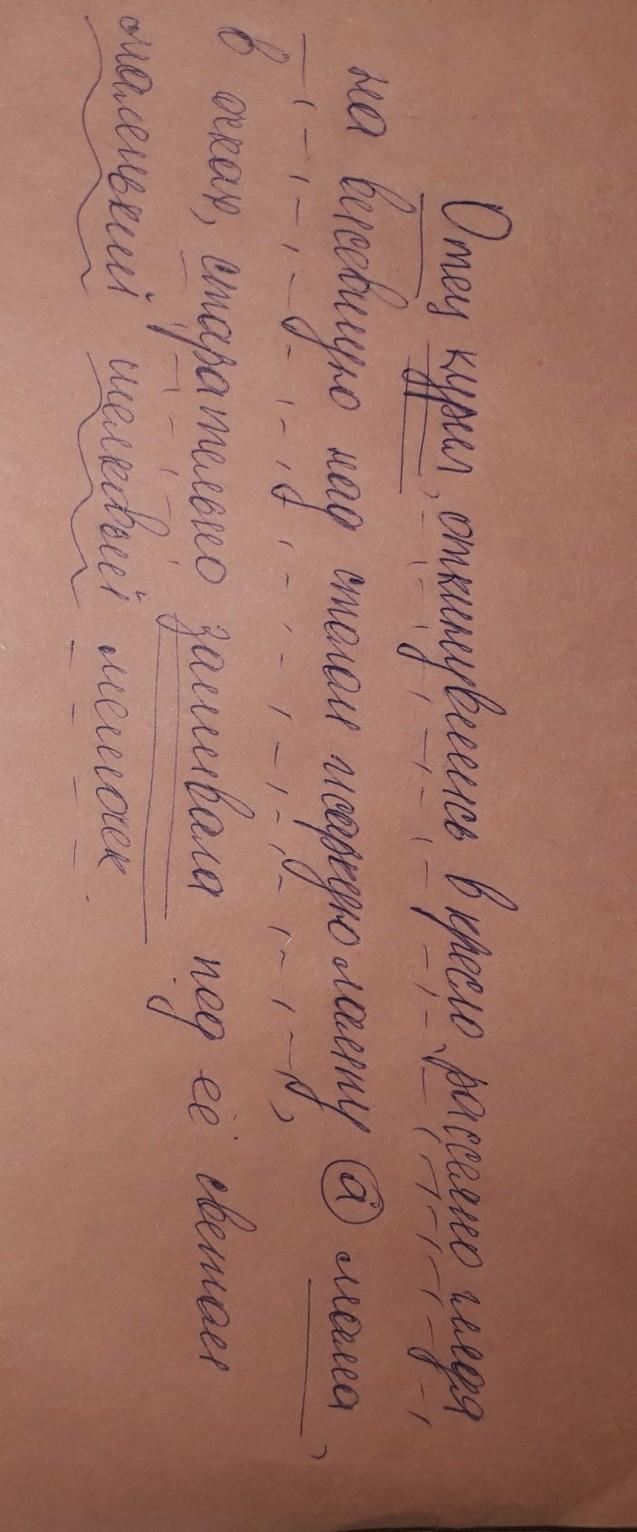 Отец курил, откинувшись в кресло, рассеянно глядя
на висевшую над столом жаркую лампу, а мама,
в очках, старательно зашивала под её светом
маленький шелковый мешочек.